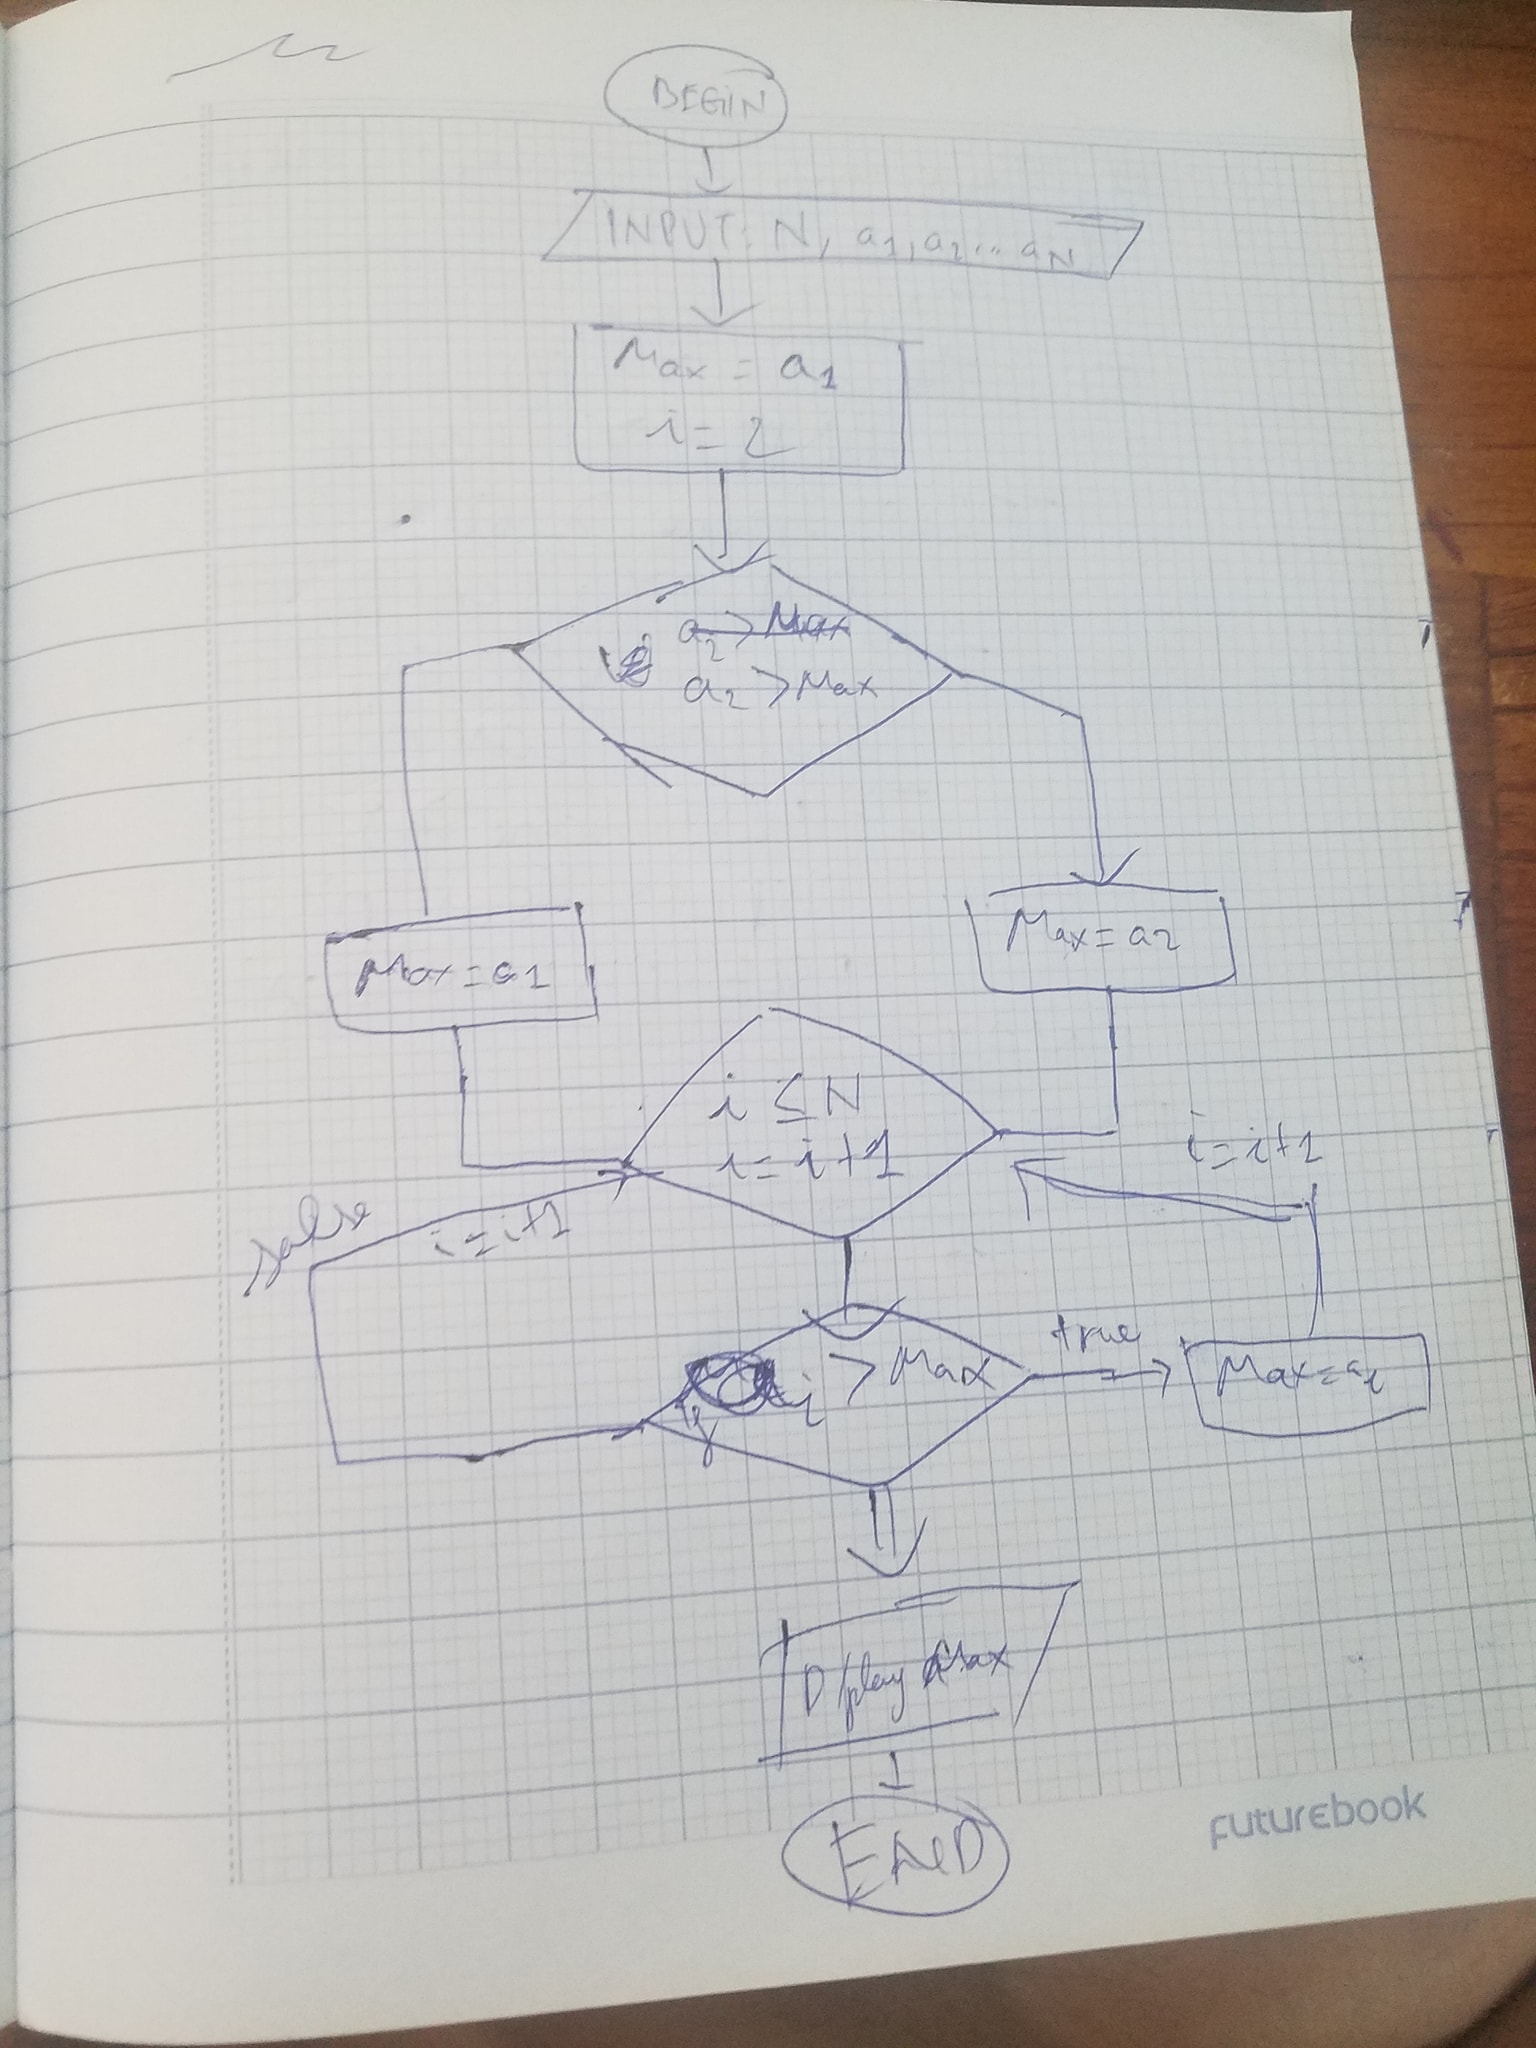 BEGIN
INPUT: N, a1, a2... aN
Max = a1
i = 2
a2 > Max
a2 > Max
Max = a1
Max = a2
i ≤ N
i = i+1
i = i+1
false
i = i+1
if ai > Max
true
Max = ai
D/play Max
END
futurebook